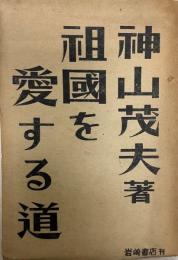 神山茂夫著
祖國を
愛する道
岩崎書店刊